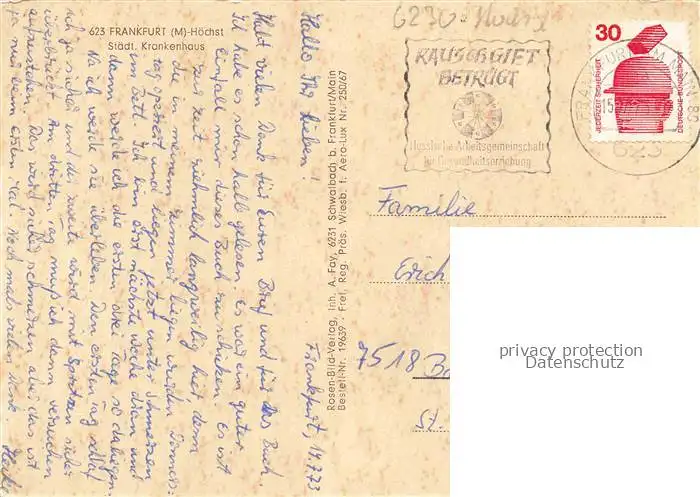 623 FRANKFURT (M)-Höchst
Städt. Krankenhaus
Frankfurt, 14.7.73
Hallo Ihr Lieben!
Habt vielen Dank für Euren Brief und für das Buch.
Ich habe es schon halb gelesen. Es war ein guter
Einfall mir dieses Buch zu schicken. Es ist
zur Zeit ziemlich langweilig hier, denn
die in meinem Zimmer liegen wurden Donners-
tag operiert und liegen jetzt unter Schmerzen
im Bett. Ich bin erst nächste Woche dran und
dann werde ich die ersten drei Tage so daliegen.
Na ich werde sie überleben. Den ersten Tag schlaf
ich ja sicher und der zweite wird mit Spritzen sicher
überbrückt. Am dritten Tag muß ich dann versuchen
aufzustehen. Das wird sicher schmerzen aber das ist
ja nur beim ersten Mal. Noch mals vielen Dank
Rosen-Bild-Verlag, Inh. A. Fay, 6231 Schwalbach b. Frankfurt/Main
Bestell-Nr. 19639 · Frei. Reg. Präs. Wiesb. f. Aero-Lux Nr. 250/67
6230
RAUSCHGIFT
BETRÜGT
Hessische Arbeitsgemeinschaft
für Gesundheitserziehung
30
JEDERZEIT SICHERHEIT
DEUTSCHE BUNDESPOST
FRANKFURT AM MAIN
623
Familie
Erich
7518
St.
privacy protection
Datenschutz